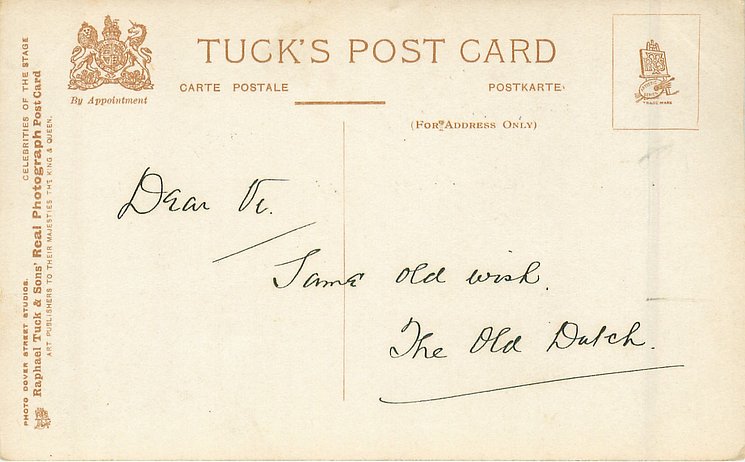 TUCK'S POST CARD
By Appointment
CARTE POSTALE
POSTKARTE
(FOR ADDRESS ONLY)
TRADE MARK
PHOTO DOVER STREET STUDIOS.
CELEBRITIES OF THE STAGE
Raphael Tuck & Sons' Real Photograph Post Card
ART PUBLISHERS TO THEIR MAJESTIES THE KING & QUEEN.
Dear Ve.
Same old wish.
The Old Dutch.